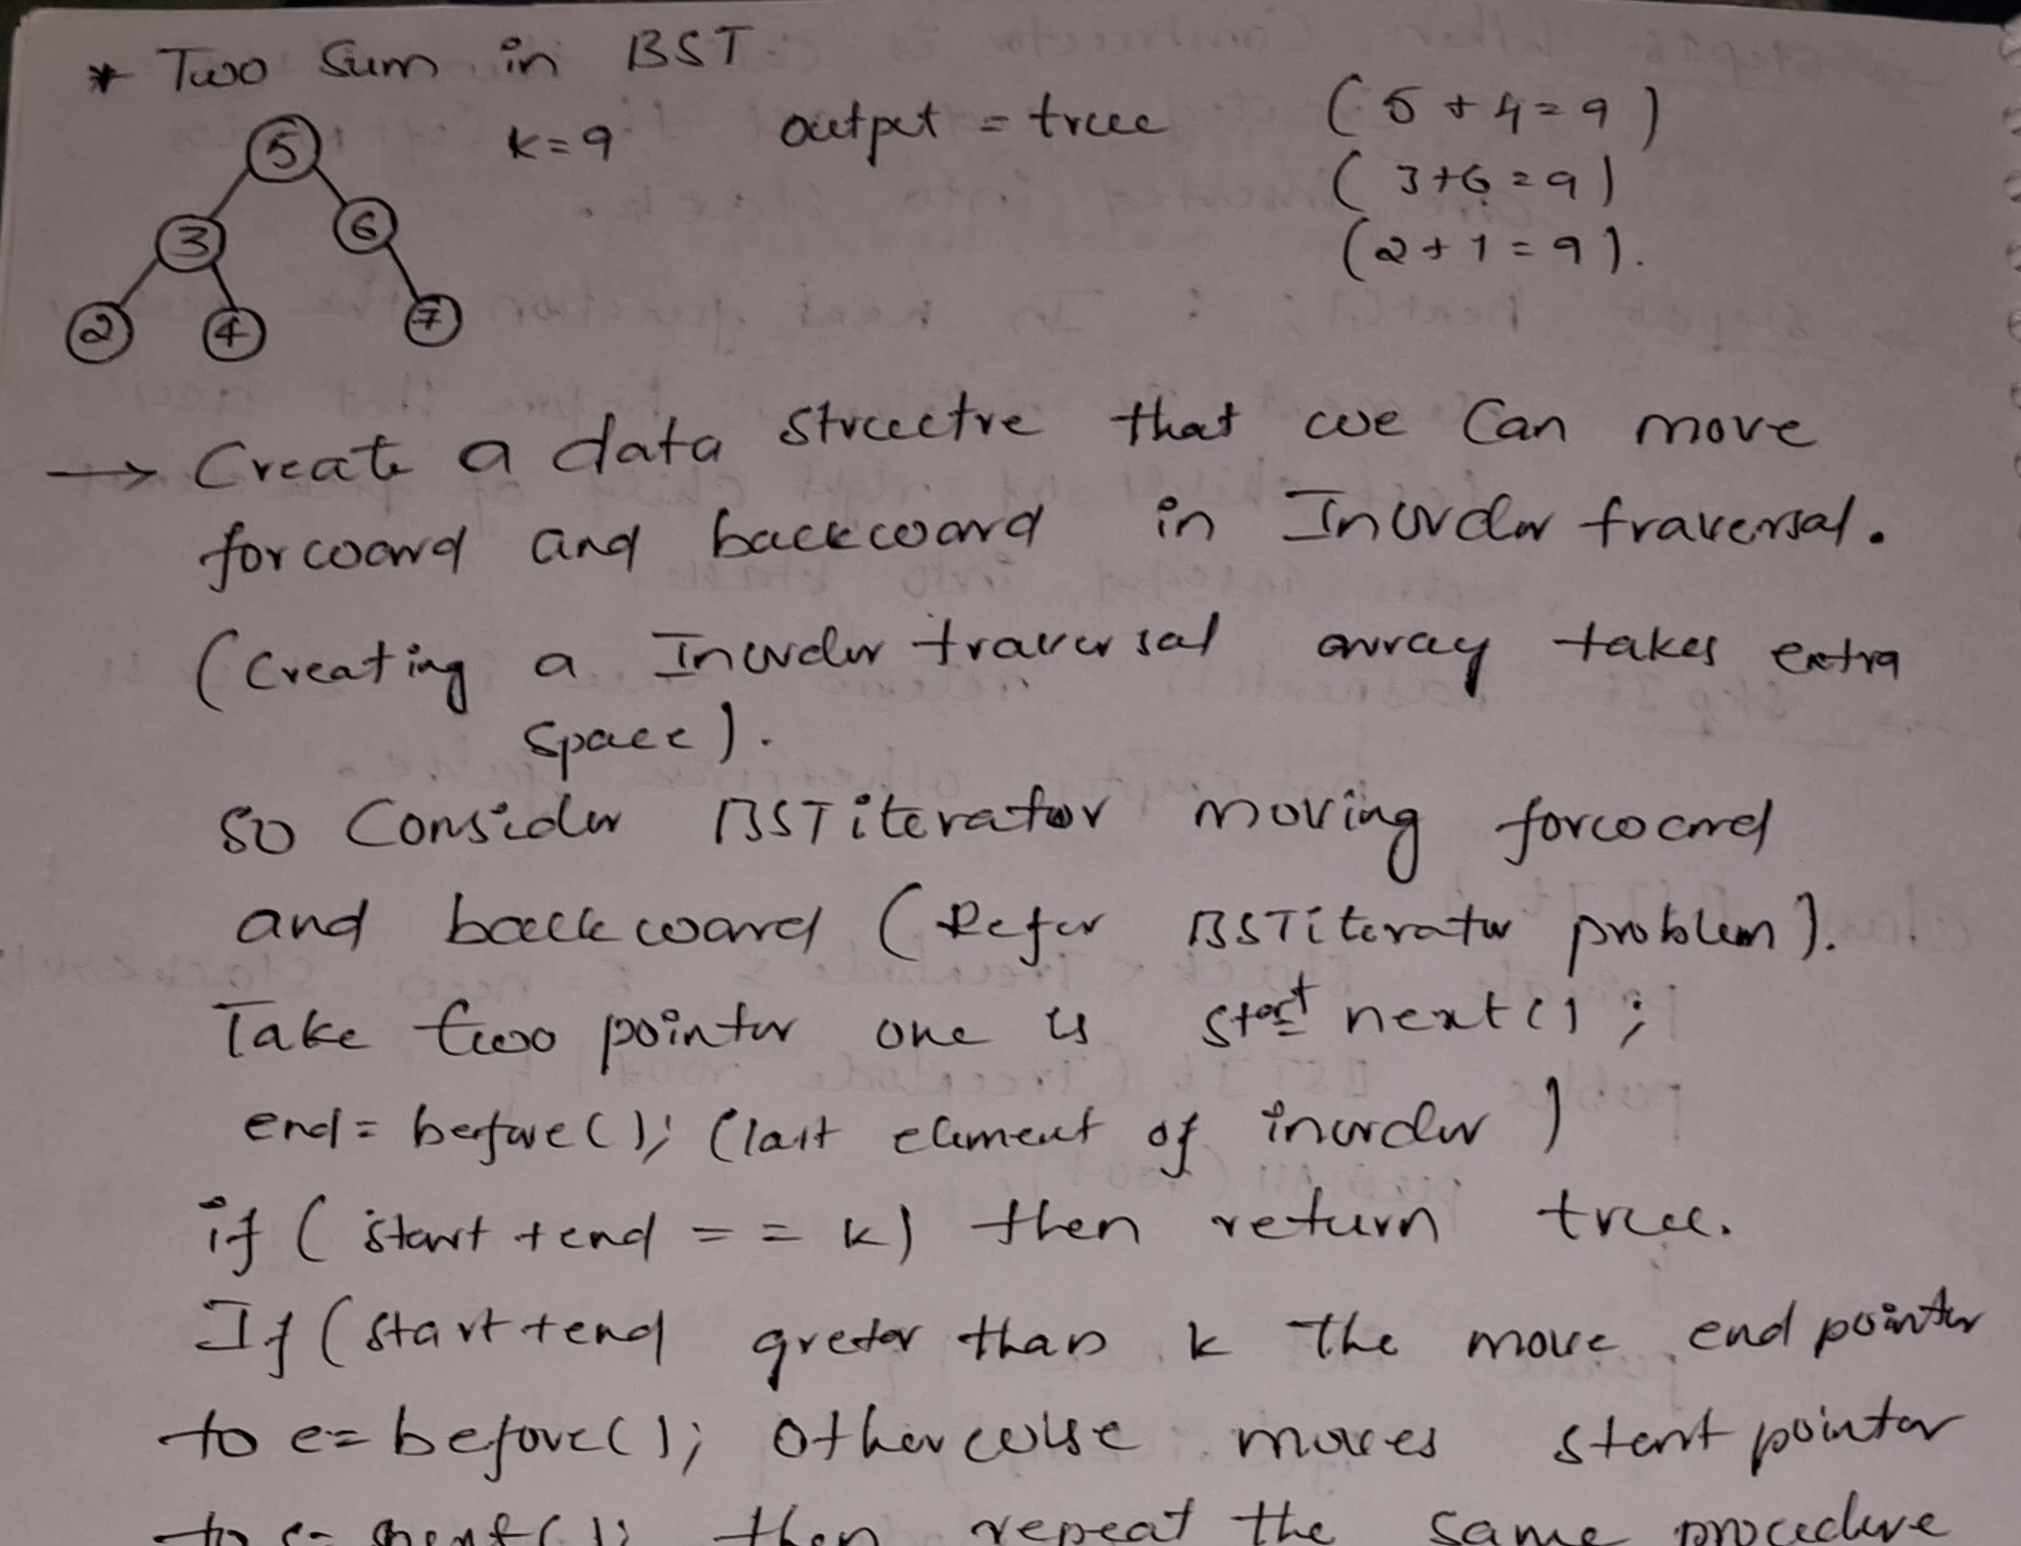 * Two Sum in BST
k=9 output = true (5+4=9)
(3+6=9)
(2+7=9).
5
3 6
2 4 7
→ Create a data structre that we can move
forward and backward in Inorder traversal.
(Creating a Inorder traversal array takes extra
space).
So Consider BSTiterator moving forward
and backward (Refer BSTiterator problem).
Take two pointer one is start next();
end = before(); (last element of inorder)
if (start + end == k) then return true.
If (start + end greter than k the move end pointer
to e = before(); otherwise moves start pointer
to s = next(); then repeat the same procedure